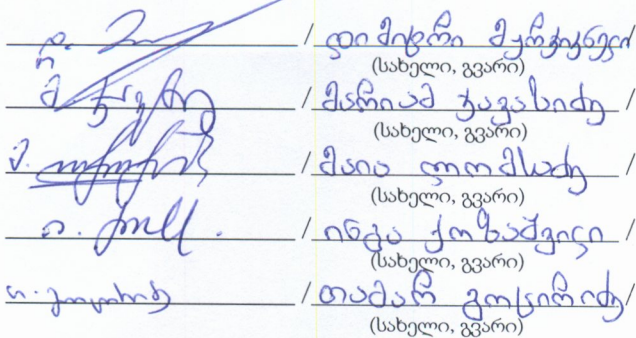 / დიმიტრი მკრტიჩელი /
(სახელი, გვარი)
/ მარიამ ჯავახიძე /
(სახელი, გვარი)
/ მაია ლომსაძე /
(სახელი, გვარი)
/ ინგა ქოზაშვილი /
(სახელი, გვარი)
/ თამარ გოცირიძე /
(სახელი, გვარი)